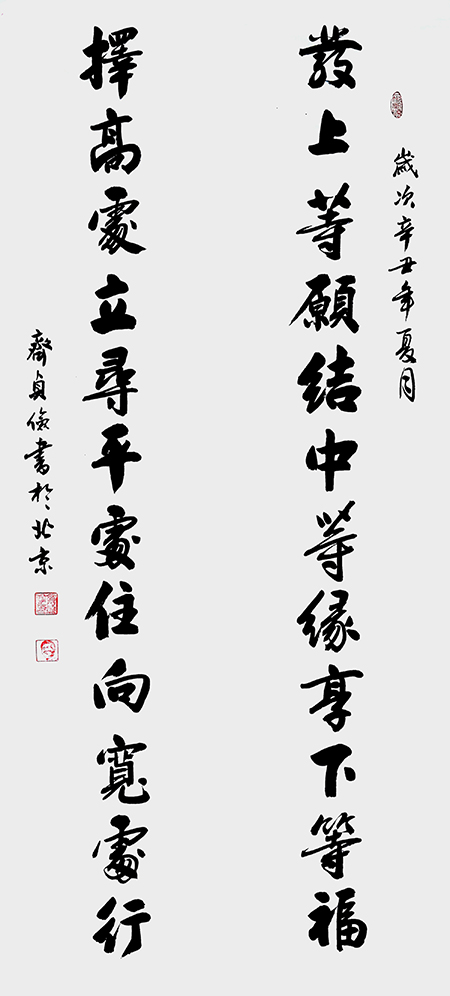 歲次辛丑年夏月
發上等願結中等緣享下等福
擇高處立尋平處住向寬處行
齊貞儉書於北京